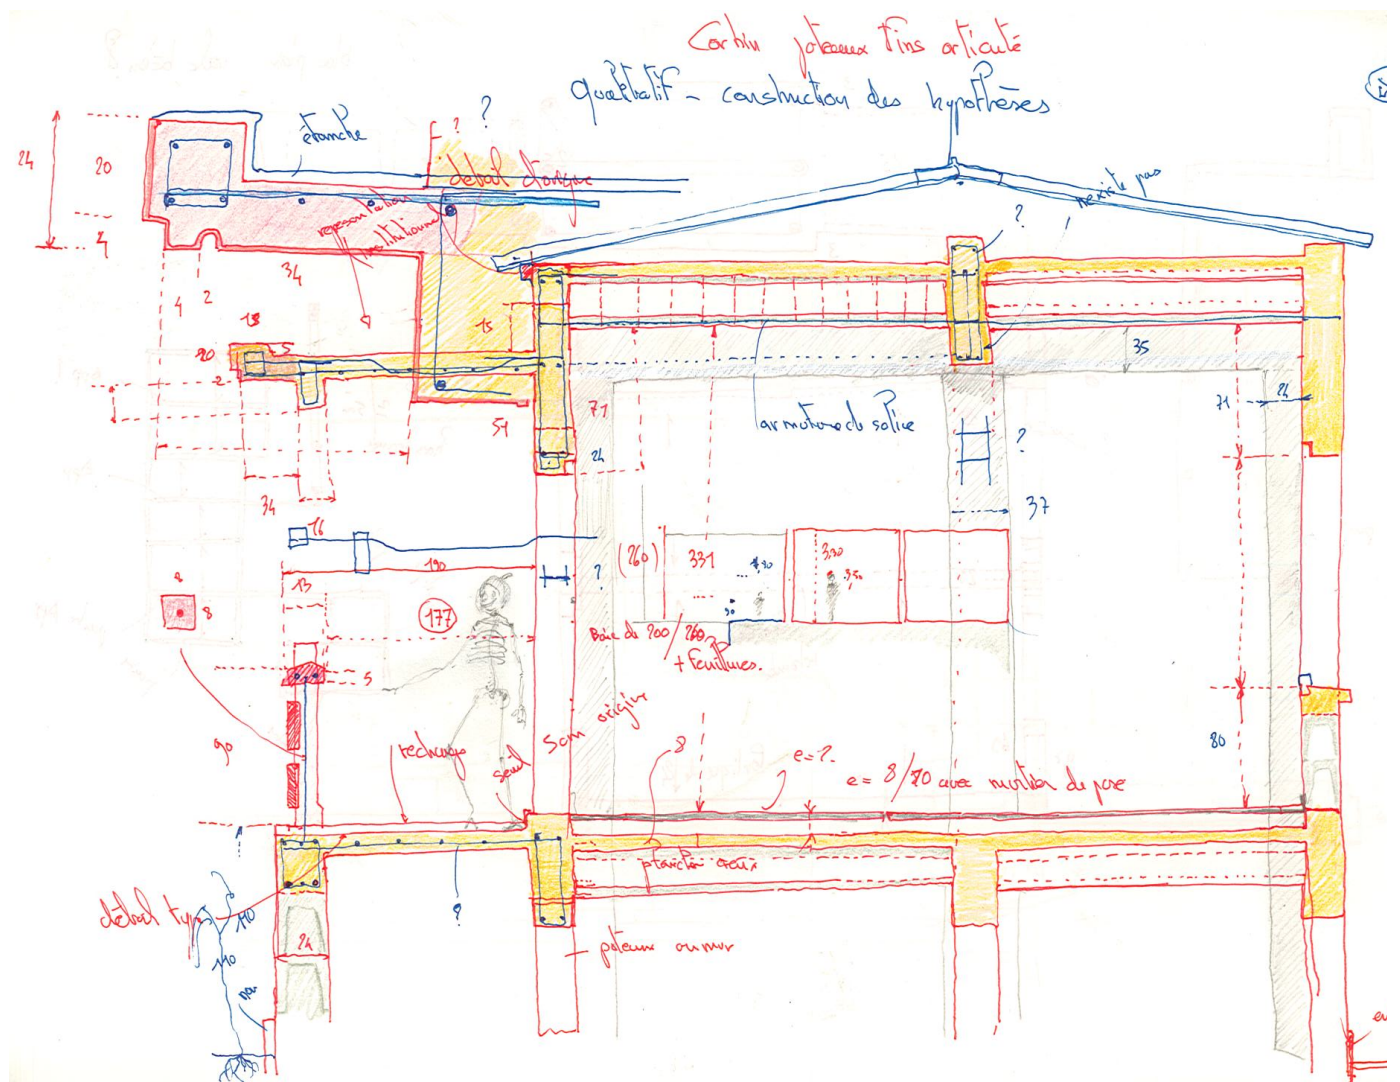 poteaux fins articulé
qualitatif - construction des hypothèses
24
20
4
étanche
?
?
détail d'origine
représentation
institutionnel
n'existe pas
?
34
4
2
18
5
20
2
15
35
71
51
24
71
24
armature de solive
?
34
37
16
190
13
?
(260)
331
3,30
350
90
8
8
177
Baie de 200/260
+ feuillures.
5
origine
5 cm
90
rechange
seuil
8
e=?
e = 8/10 avec mortier de pose
80
plancher creux
détail type
?
110
110
24
poteau ou mur